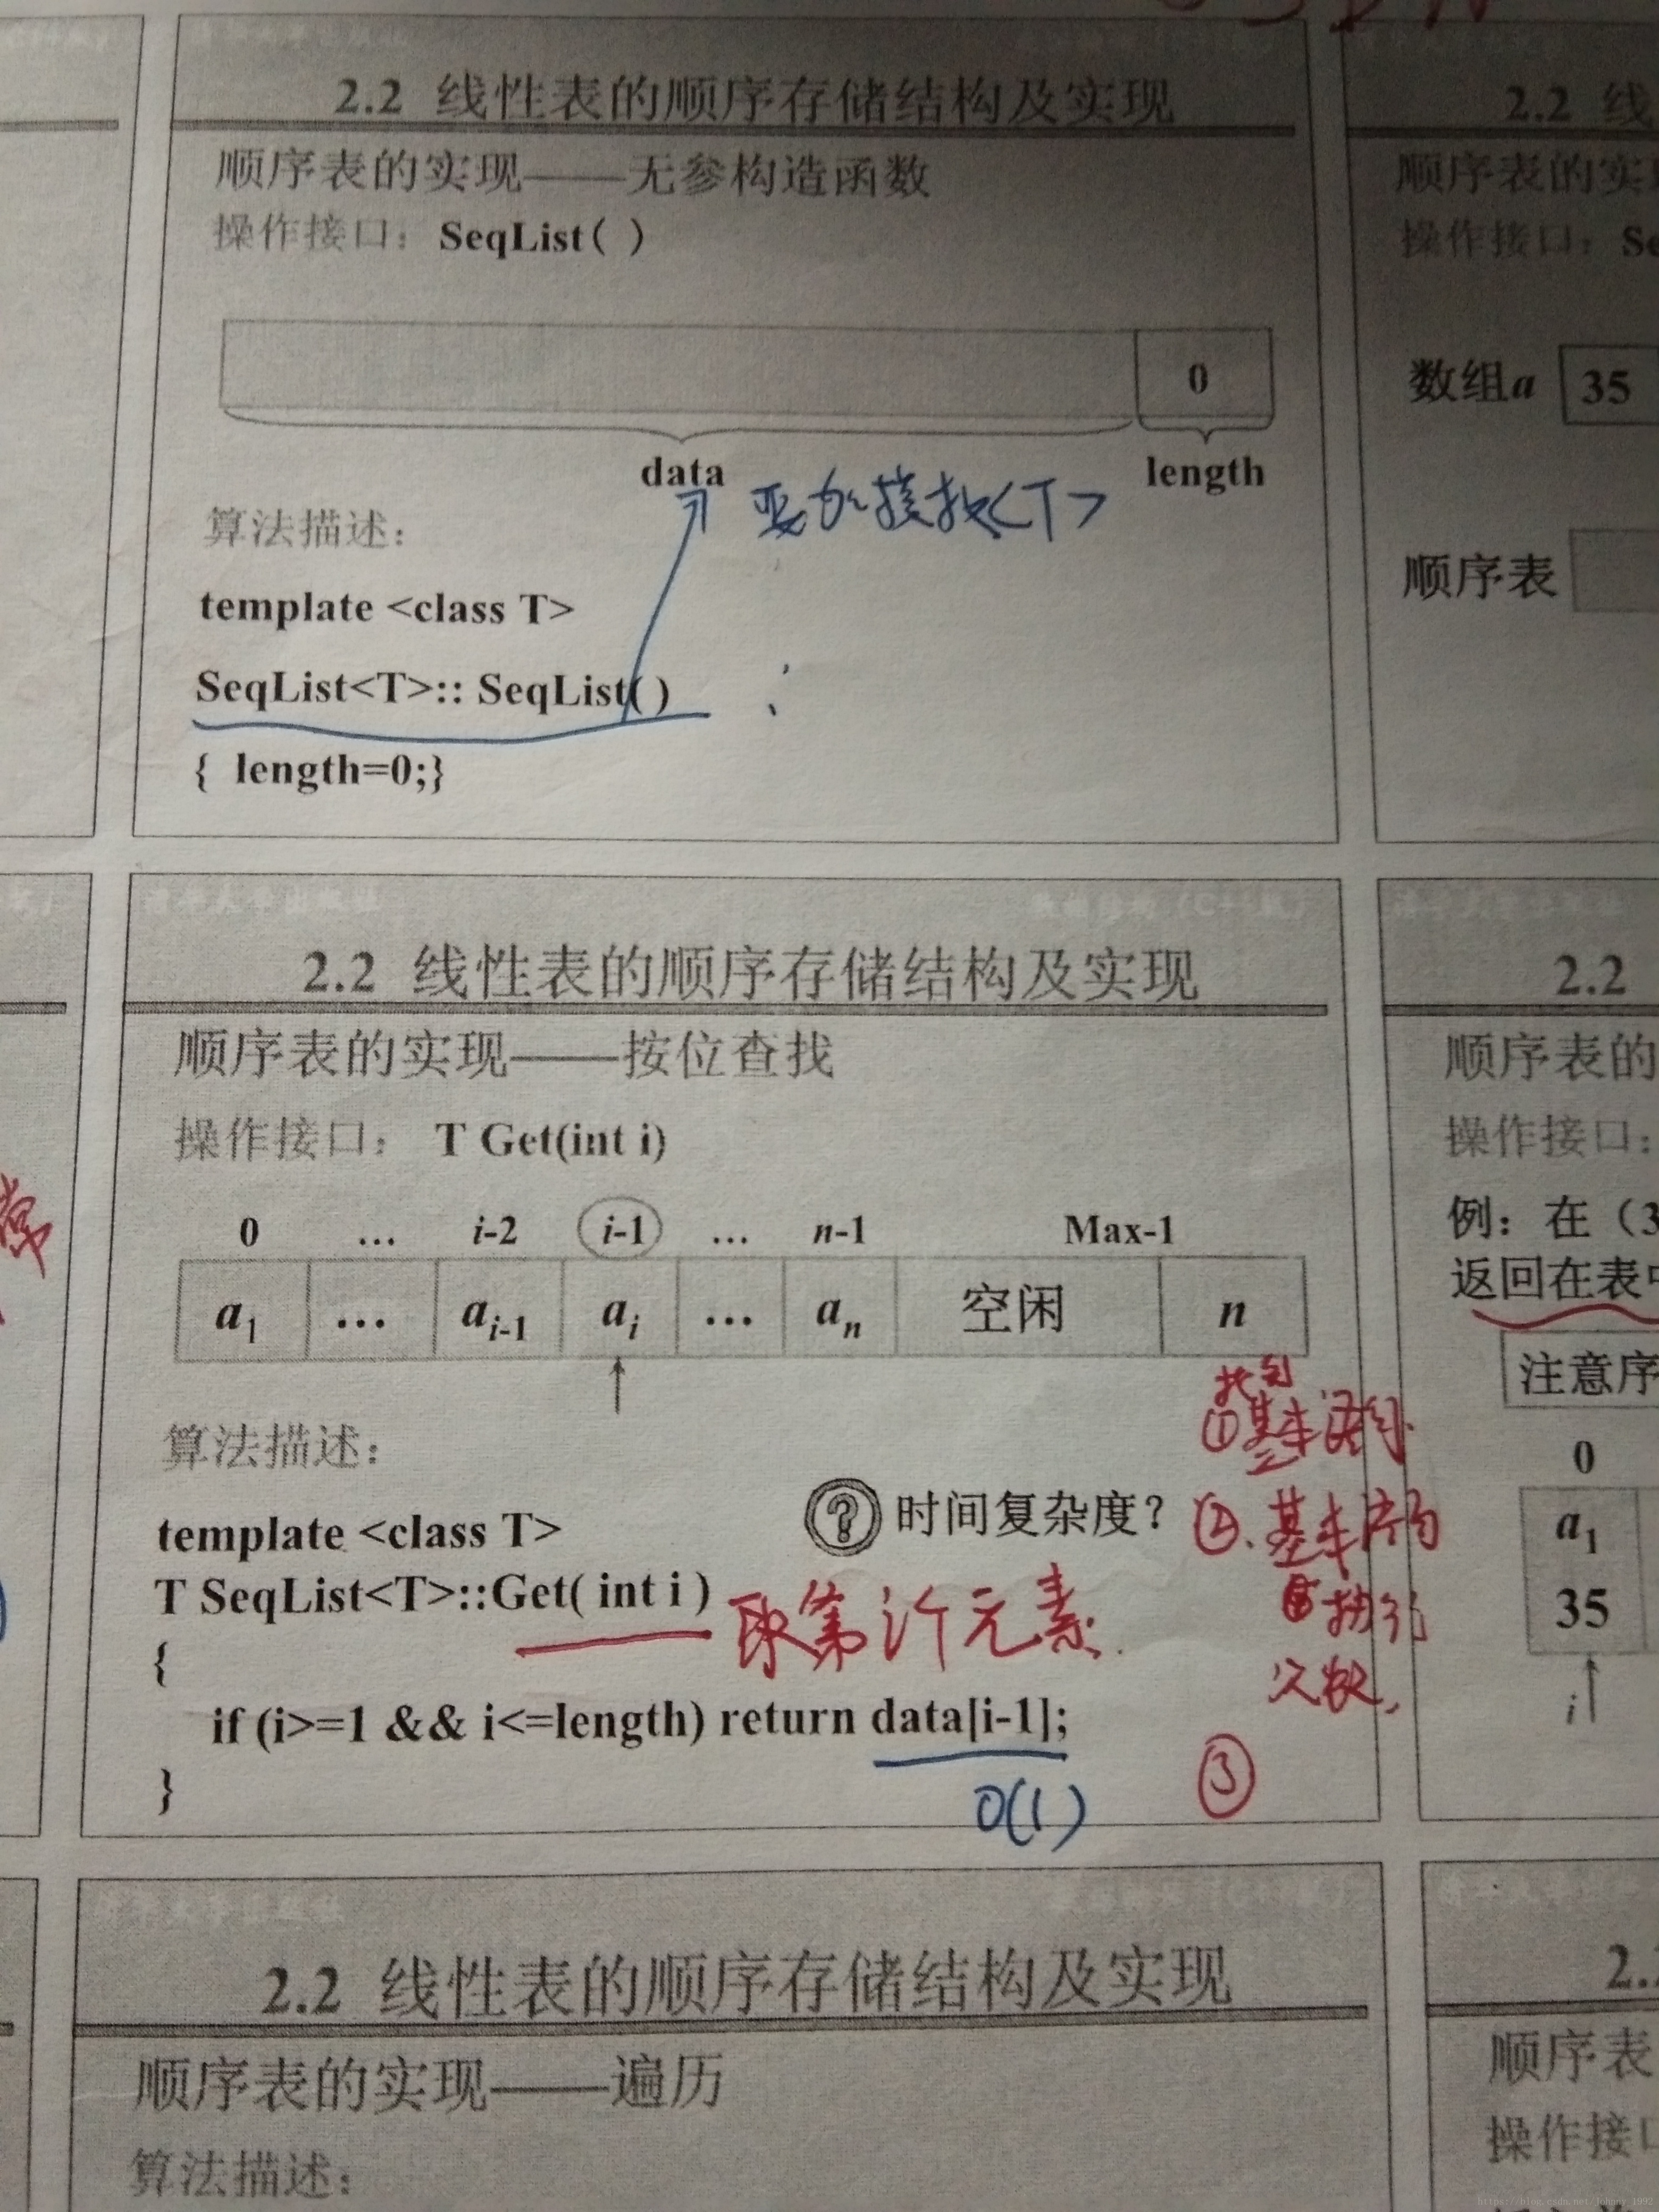 2.2 线性表的顺序存储结构及实现
顺序表的实现——无参构造函数
操作接口：SeqList( )
0
data length
要加模板<T>
算法描述：
template <class T>
SeqList<T>:: SeqList( )
{ length=0;}
2.2 线
顺序表的实
操作接口：Se
数组a 35
顺序表
清华大学出版社 数据结构（C++版）
2.2 线性表的顺序存储结构及实现
顺序表的实现——按位查找
操作接口： T Get(int i)
0 … i-2 i-1 … n-1 Max-1
a1 … ai-1 ai … an 空闲 n
算法描述：
找到
①基本语句
时间复杂度？
②.基本语句
执行
次数,
③
template <class T>
T SeqList<T>::Get( int i ) 取第i个元素.
{
if (i>=1 && i<=length) return data[i-1];
O(1)
}
常
2.2
顺序表的
操作接口：
例：在（3
返回在表中
注意序
0
a1
35
i
2.2 线性表的顺序存储结构及实现
顺序表的实现——遍历
算法描述：
2.
顺序表
操作接
https://blog.csdn.net/Johnny_1992